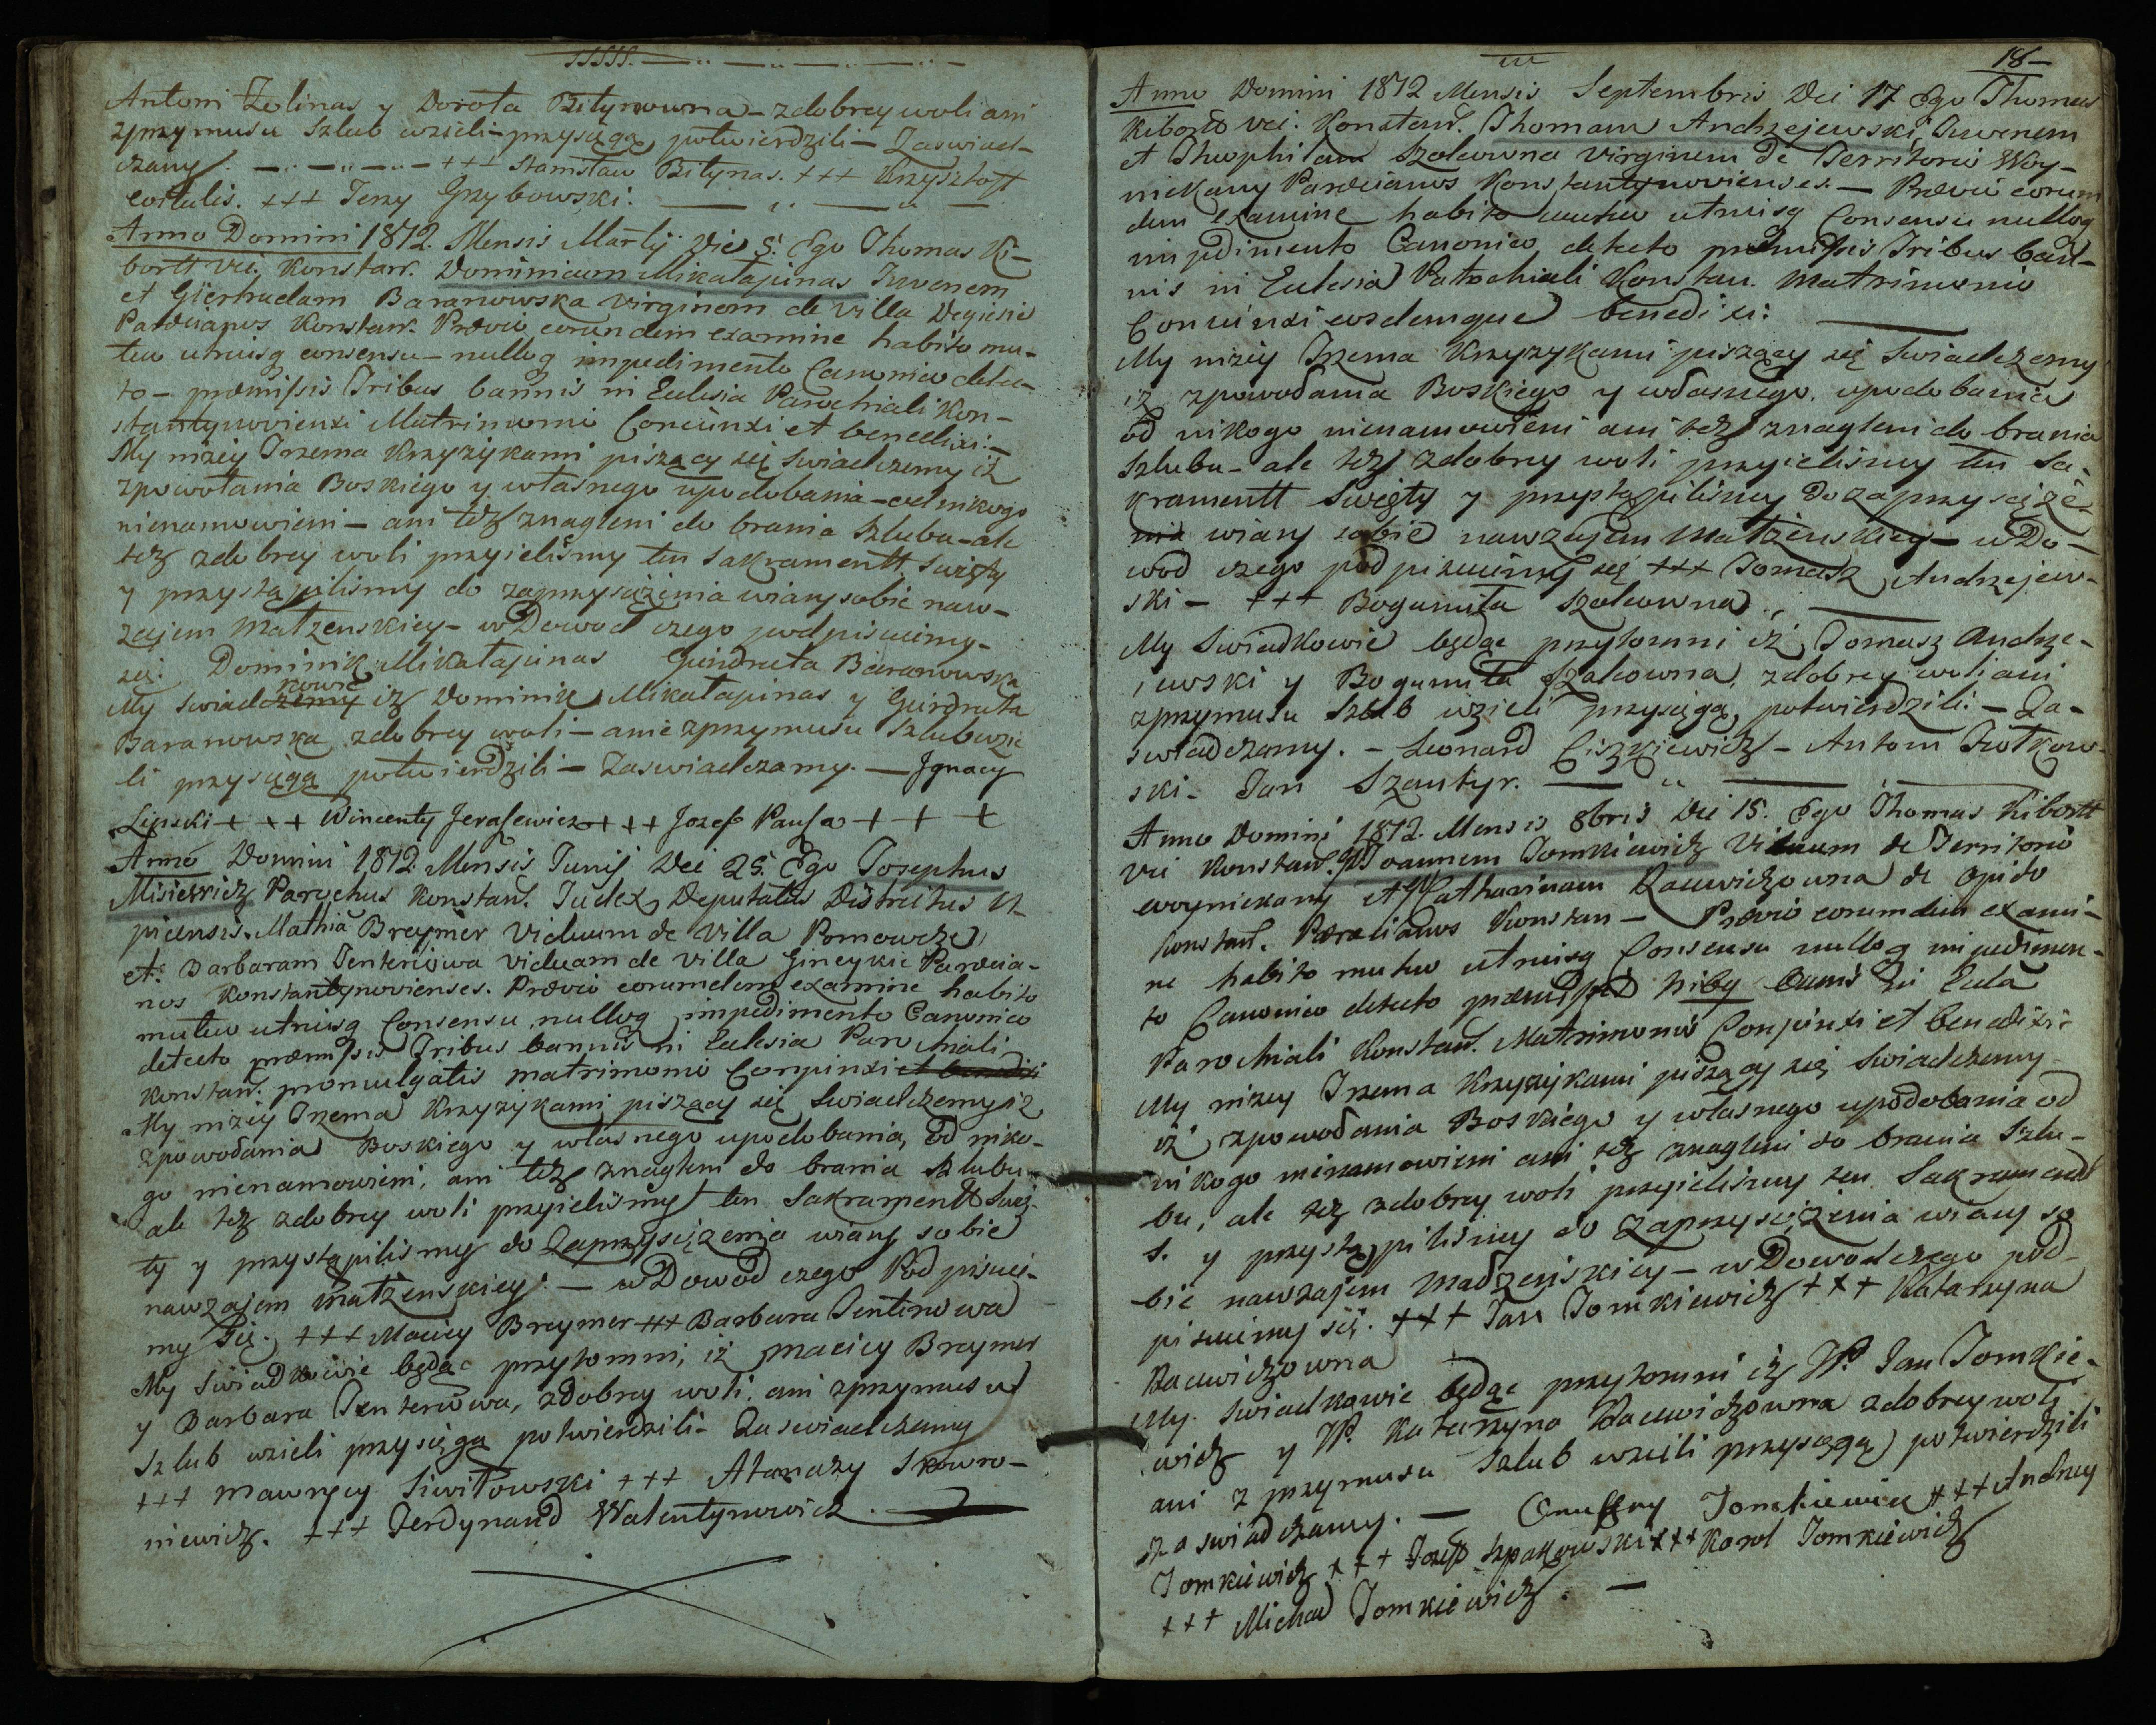 Antoni Zelinas y Dorota Bitynowna – zdobrey woli ani
zprzymusu Szlub wzieli – przysięgą potwierdzili – Zaswiad-
czamy. +++ Stanisław Bitynas. +++ Krzysztoff
+++ Jerzy Grzybowski.
Anno Domini 1812. Mensis Martij Die 5. Ego Thomas Ki-
bortt Vci. Konstan. Dominicum Mikałajunas Juvenem
et Giertrudam Baranowska Virginem de Villa Degiesie
Parœcianos Konstan. Prævio eorundem examine habito mu-
tuo utriusq consensu – nulloq impedimento Canonico detec-
to – præmissis Tribus bannis in Eclesia Parochiali Kon-
stantynoviensi Matrimonio Conciunxi et benedixi –
My niżey Trzema Krzyżykami piszący się swiadczemy iż
zpowołania Boskiego y własnego upodobania – od nikogo
nienamowieni – ani też znagleni do brania Szlubu – ale
też zdobrey woli przyieliśmy ten Sakramentt Swięty
y przystąpiliśmy do zaprzysiężenia wiary sobie naw-
zajem Małzenskiey – w Dowod czego podpisuiemy
się: Dominik Mikałajunas Giendruta Baranowska
My Swiadkowie iż Dominik Mikałajunas y Giendruta
Baranowska zdobrey woli – anie zprzymusu Szlub wzie
li przysięgą potwierdzili – Zaswiadczamy. – Jgnacy
Lipski + + + Wincenty Jerasewicz + + + Jozef Pausa + + +
Anno Domini 1812 Mensis Junij Dei 25. Ego Josephus
Misiewicz Parochus Konstan. Judex Deputatus Districtus U-
picensis. Mathia Breymer Viduum de Villa Pomowcze
et Barbaram Tenteriowa Viduam de Villa Gineykie Parœcia-
nos Konstantynovienses. Prævio eorumdem examine habito
mutuo utriusq Consensu nulloq impedimento Canonico
detecto præmissis Tribus bannis in Eclesia Parochiali
Konstan. promulgatis matrimonio Conjunxi et benedixi
My niżey Trzema Krzyżykami piszący się Swiadczemy iż
zpowodania Boskiego y własnego upodobania, od niko-
go nienamowieni, ani też znagleni do brania Szlubu
ale też zdobrey woli przyieliśmy ten Sakramentt Swię-
ty y przystąpilismy do Zaprzysiężenia wiary sobie
nawzajem małżenskiey. – w Dowod czego Podpisuie-
my się. +++ Maciey Breymer +++ Barbara Tenterowa
My Swiadkowie będąc przytomni, iż Maciey Breymer
y Barbara Tenterowa, zdobrey woli. ani zprzymusu
Szlub wzieli przysięgą potwierdzili – Zaswiadczamy
+++ Mawrycy Siwiłowski +++ Atanazy Skowro-
niewicz. +++ Ferdynand Walentynowicz.
18–
Anno Domini 1812 Mensis Septembris Dei 17 Ego Thomas
Kibortt Vci. Konstan. Thomam Andrzejewski, Juvenem
et Theophilam Szolcowna Virginem de Territorio Woy-
niekany Parœcianos Konstantynovienses. – Prævio eorum
dem examine habito mutuo utriusq Consensu nulloq
impedimento Canonico detecto præmissis Tribus ban-
nis in Eclesia Parochiali Konstan. Matrimonio
Conciunxi eosdemque benedixi:
My niżey Trzema Krzyżykami piszący się Swiadczemy
iż zpowodania Boskiego y własnego upodobania
od nikogo nienamowieni ani też znagleni do brania
Szlubu – ale też zdobrey woli przyieliśmy ten Sa-
kramentt Swięty y przystąpiliśmy do zaprzysięże-
nia wiary sobie nawzajem Małzenskiey – w Do-
wod czego podpisuiemy się +++ Tomasz Andrzejew-
ski – +++ Bogumiła Szolcowna
My Swiadkowie będąc przytomni iż Tomasz Andrze-
iewski y Bogumiła Szolcowna zdobrey woli ani
zprzymusu Szlub wzieli przysięgą potwierdzili – Za-
swiadczamy. – Leonard Ciszkiewicz – Antoni Jutkow-
ski – Jan Szantyr.
Anno Domini 1812. Mensis 8bris Dei 15. Ego Thomas Kibortt
Vci Konstan. Joannem Tomkiewicz Viduum de Territorio
woyniekany et Catharinam Racewiczowna de Opido
Konstan. Parœcianos Konstan – Prævio eorumdem exami-
ne habito mutuo utriusq Consensu nulloq impedimen-
to Canonico detecto præmissis Bannis in Ecla
Parochiali Konstan. Matrimonio Conjunxi et benedixi
My niżey Trzema Krzyżykami piszący się Swiadczemy
iż zpowodania Boskiego y własnego upodobania od
nikogo nienamowieni ani też znagleni do brania Szlu-
bu, ale też zdobrey woli przyieliśmy ten Sakramentt
S. y przystąpiliśmy do Zaprzysiężenia wiary so
bie nawzajem Madżenskiey – w Dowod czego pod-
pisuiemy się. +++ Jan Tomkiewicz +++ Katarzyna
Racewiczowna
My Swiadkowie będąc przytomni iż W. Jan Tomkie-
wicz y W. Katarzyna Racewiczowna zdobrey woli
ani z przymusu Szlub wzieli przysięgą potwierdzili
zaswiadczamy. – Onuffry Tomkiewicz +++ Andrzey
Tomkiewicz +++ Jozeff Szpakowski +++ Karol Tomkiewicz
+++ Michał Tomkiewicz. –